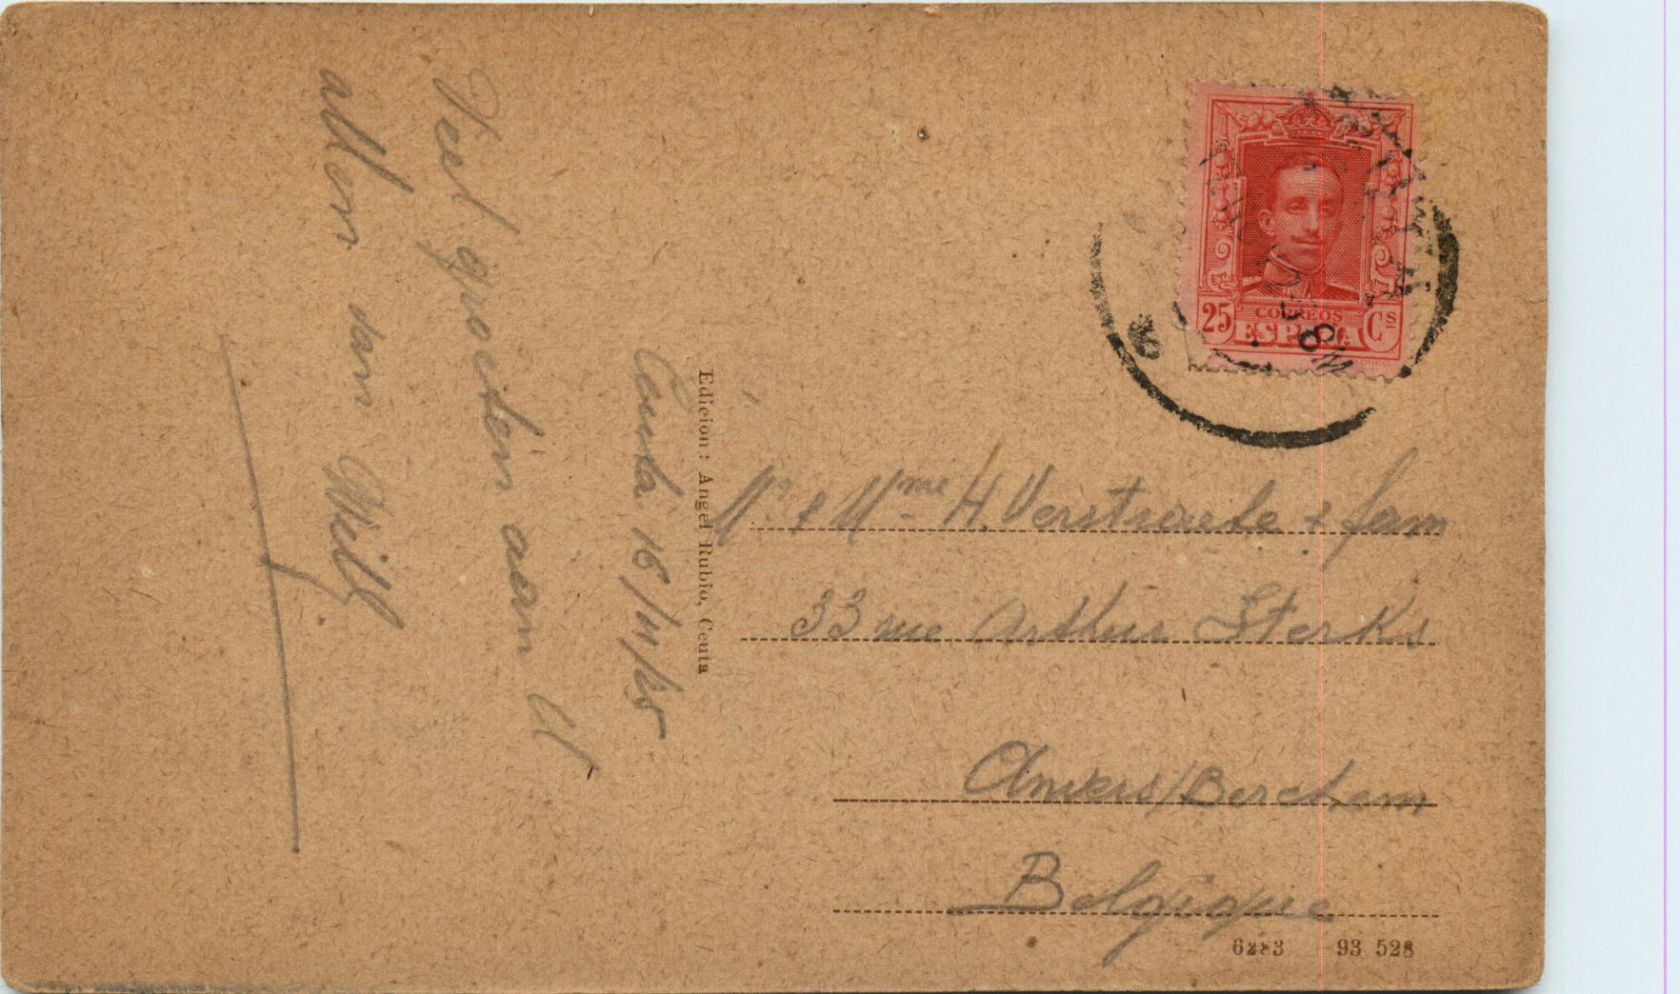 Ceuta 16/11/25
Veel groeten aan U
allen van
Edicion: Angel Rubio, Ceuta
25 Cs
CORREOS
ESPAÑA
Mr & Mme H. Verstraete + fam
33 rue Arthur Sterks
Anvers/Berchem
Belgique
93 528